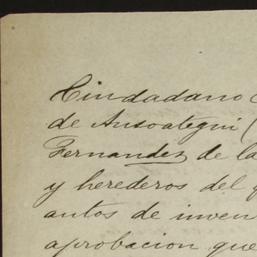 Ciudadano
de Ansoategui (
Fernandez de la
y herederos del
autos de inven
aprobacion que